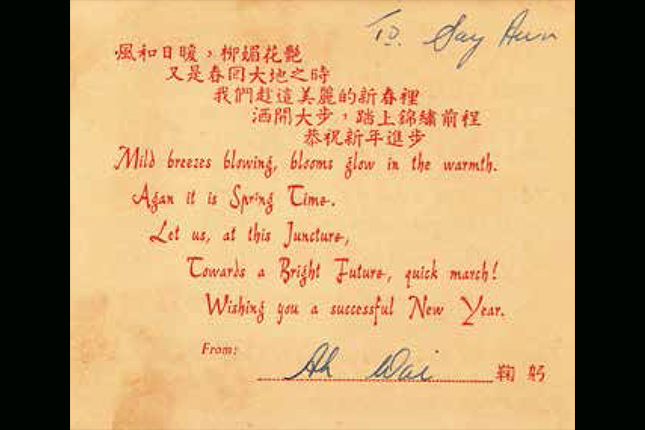 To. Say Hun
風和日暖，柳媚花艷
又是春回大地之時
我們趁這美麗的新春裡
洒開大步，踏上錦繡前程
恭祝新年進步
Mild breezes blowing, blooms glow in the warmth.
Agan it is Spring Time.
Let us, at this Juncture,
Towards a Bright Future, quick march!
Wishing you a successful New Year.
From: Ah Wai 鞠躬